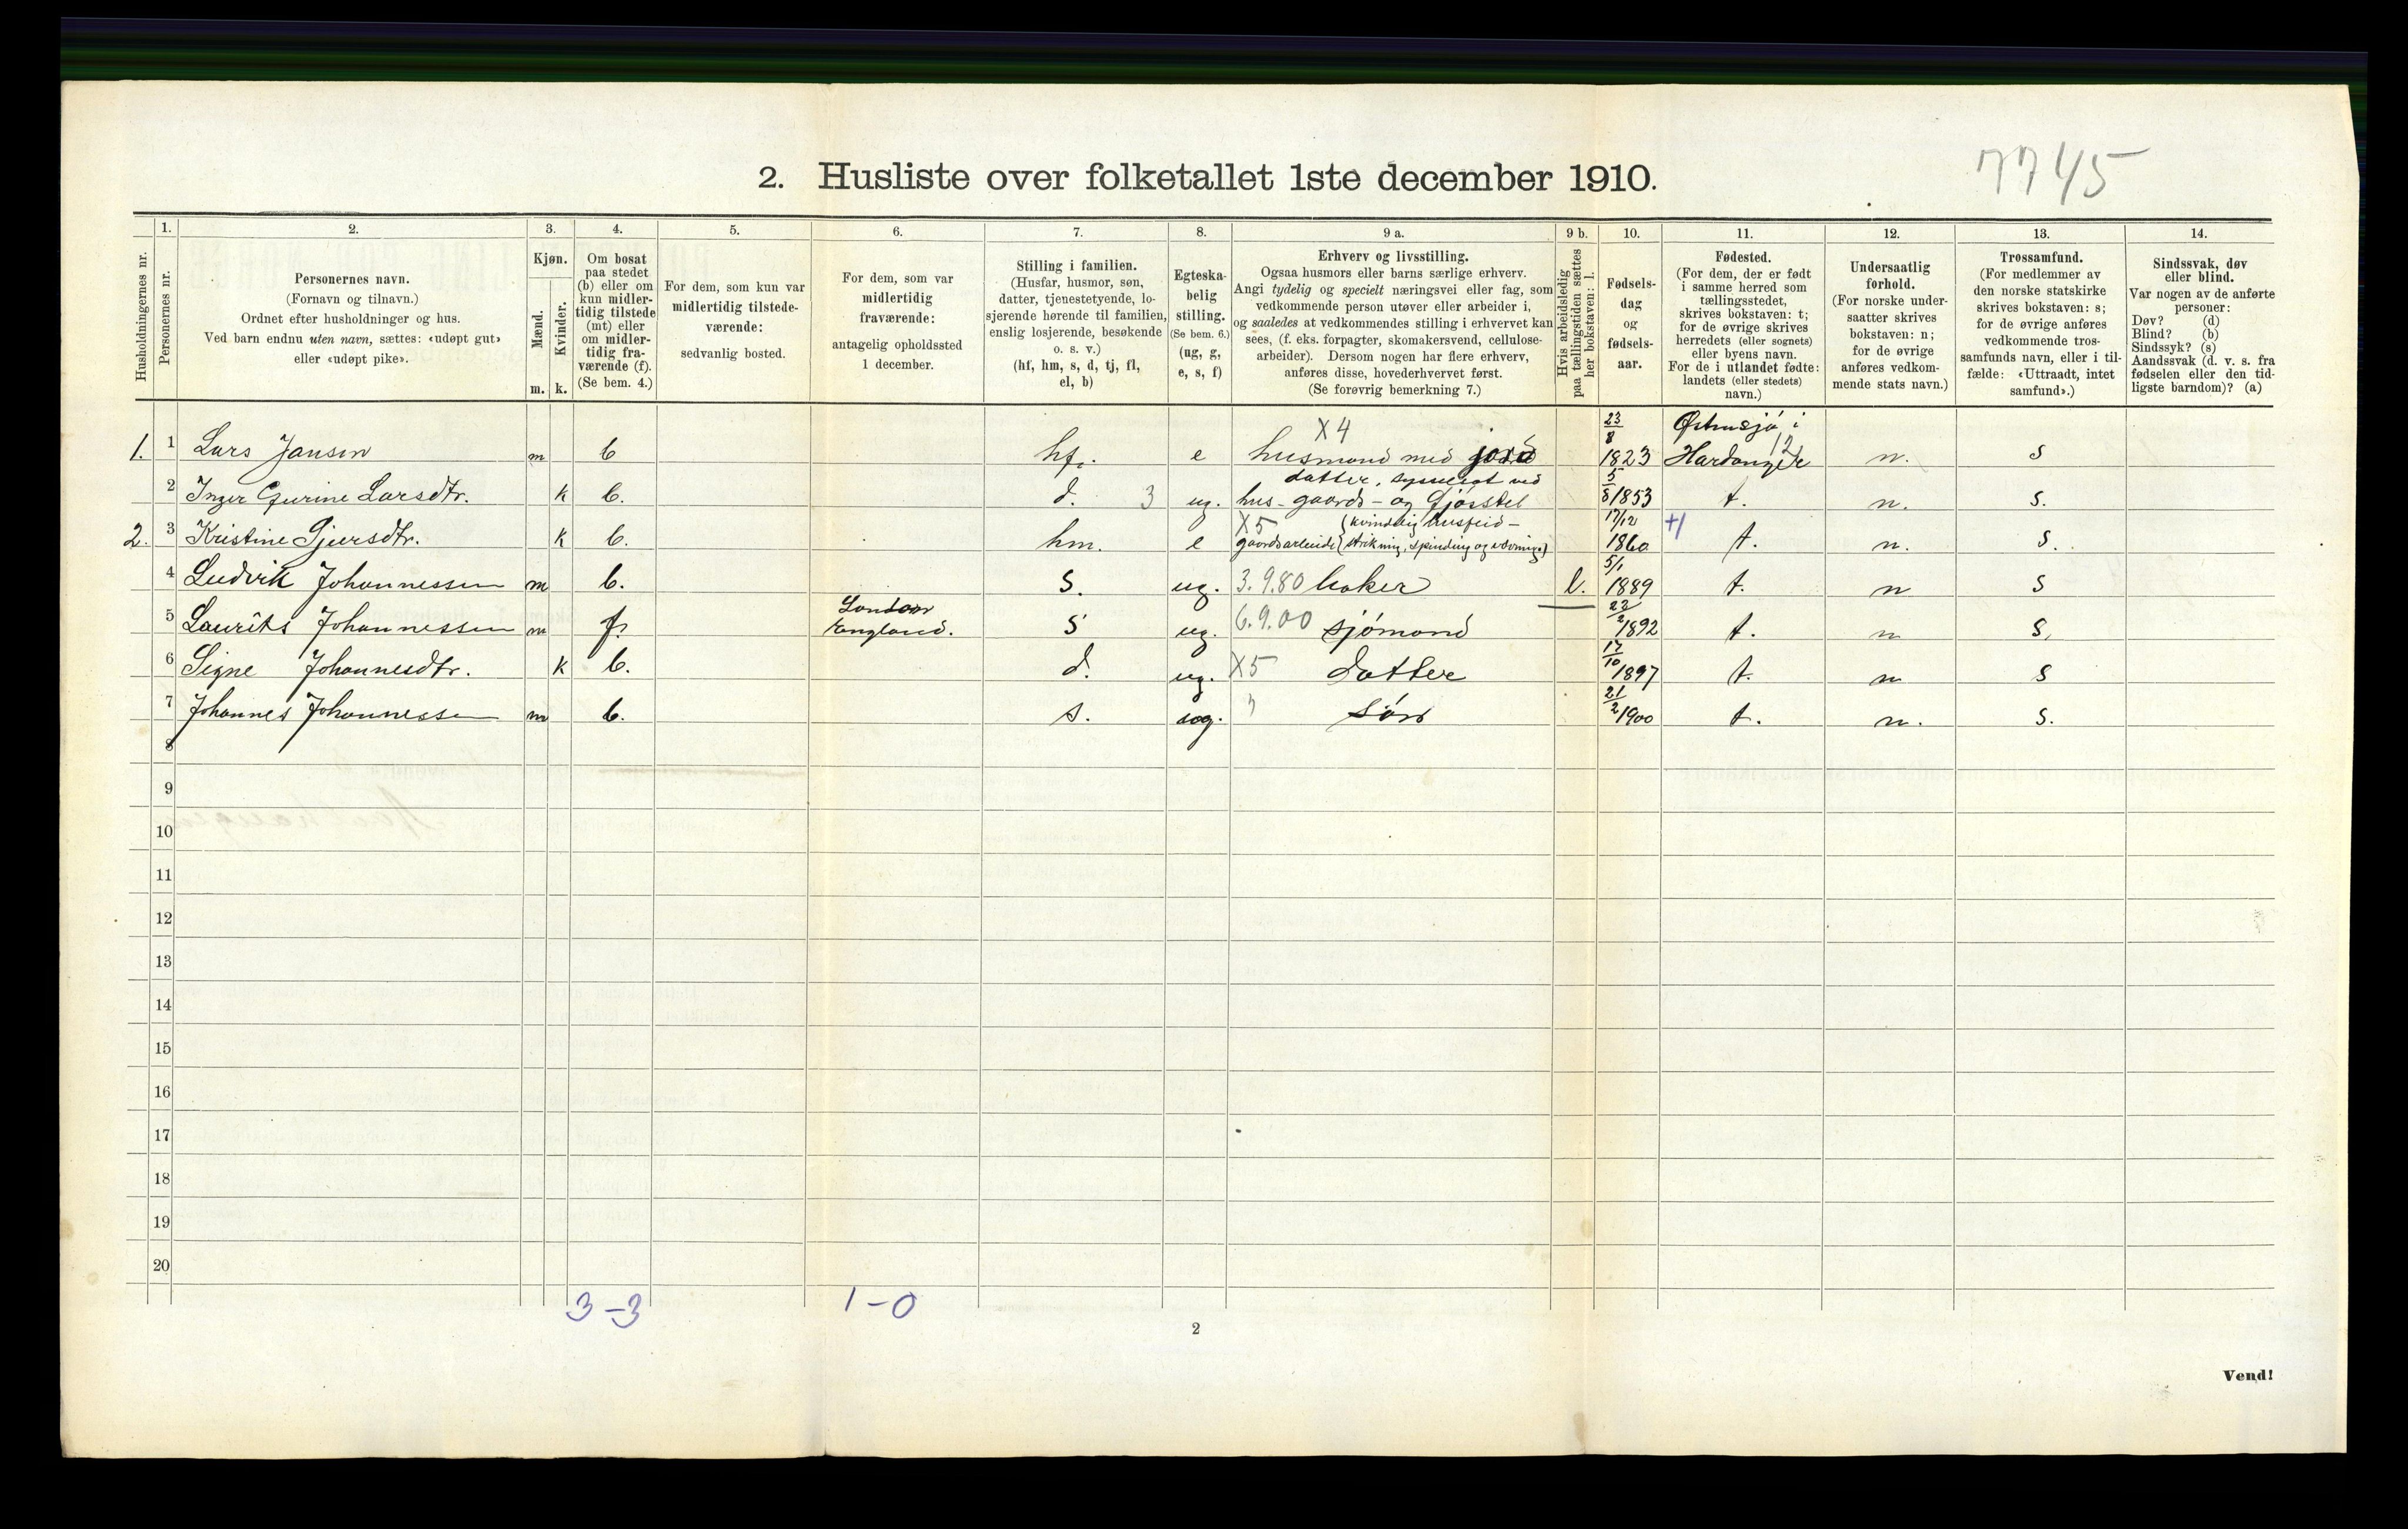 7745
2. Husliste over folketallet 1ste december 1910.
Husholdningernes nr.
1.
Personernes nr.
2.
Personernes navn.
(Fornavn og tilnavn.)
Ordnet efter husholdninger og hus.
Ved barn endnu uten navn, sættes: «udøpt gut»
eller «udøpt pike».
3.
Kjøn.
Mænd.
Kvinder.
m. k.
4.
Om bosat
paa stedet
(b) eller om
kun midler-
tidig tilstede
(mt) eller
om midler-
tidig fra-
værende (f).
(Se bem. 4.)
5.
For dem, som kun var
midlertidig tilstede-
værende:
sedvanlig bosted.
6.
For dem, som var
midlertidig
fraværende:
antagelig opholdssted
1 december.
7.
Stilling i familien.
(Husfar, husmor, søn,
datter, tjenestetyende, lo-
sjerende hørende til familien,
enslig losjerende, besøkende
o. s. v.)
(hf, hm, s, d, tj, fl,
el, b)
8.
Egteska-
belig
stilling.
(Se bem. 6.)
(ug, g,
e, s, f)
9 a.
Erhverv og livsstilling.
Ogsaa husmors eller barns særlige erhverv.
Angi tydelig og specielt næringsvei eller fag, som
vedkommende person utøver eller arbeider i,
og saaledes at vedkommendes stilling i erhvervet kan
sees, (f. eks. forpagter, skomakersvend, cellulose-
arbeider). Dersom nogen har flere erhverv,
anføres disse, hovederhvervet først.
(Se forøvrig bemerkning 7.)
9 b.
Hvis arbeidsledig
paa tællingstiden sættes
her bokstaven: l.
10.
Fødsels-
dag
og
fødsels-
aar.
11.
Fødested.
(For dem, der er født
i samme herred som
tællingsstedet,
skrives bokstaven: t;
for de øvrige skrives
herredets (eller sognets)
eller byens navn.
For de i utlandet fødte:
landets (eller stedets)
navn.)
12.
Undersaatlig
forhold.
(For norske under-
saatter skrives
bokstaven: n;
for de øvrige
anføres vedkom-
mende stats navn.)
13.
Trossamfund.
(For medlemmer av
den norske statskirke
skrives bokstaven: s;
for de øvrige anføres
vedkommende tros-
samfunds navn, eller i til-
fælde: «Uttraadt, intet
samfund».)
14.
Sindssvak, døv
eller blind.
Var nogen av de anførte
personer:
Døv? (d)
Blind? (b)
Sindssyk? (s)
Aandssvak (d. v. s. fra
fødselen eller den tid-
ligste barndom)? (a)
X4 23/8 i
1. 1 Lars Jansen m b hf. e husmand med jord 1823 Hardanger n. s
datter, ved 5/8
2 Inger Gurine Larsdtr. k b. d. 3 ug. hus- gaards- og fjøsstel 1853 t. n. s.
X5 (kvindelig husflid - 17/12 +1
2. 3 Kristine Sjursdtr. k b. hm. e gaardsarbeide strikning, spinding og vævning) 1860 t. n. s.
5/1
4 Ludvik Johannessen m b. s. ug. 3.9.80 baker l. 1889 t. n s
London 22/2
5 Laurits Johannessen m f. England. s ug. 6.9.00 sjømand 1892 t. n s.
17/10
6 Signe Johannesdtr. k b. d. ug. X5 datter 1897 t. n s
21/2
7 Johannes Johannessen m b. s. ug. søn 1900 t. n. s.
8
9
10
11
12
13
14
15
16
17
18
19
20
3-3 1-0
2
Vend!